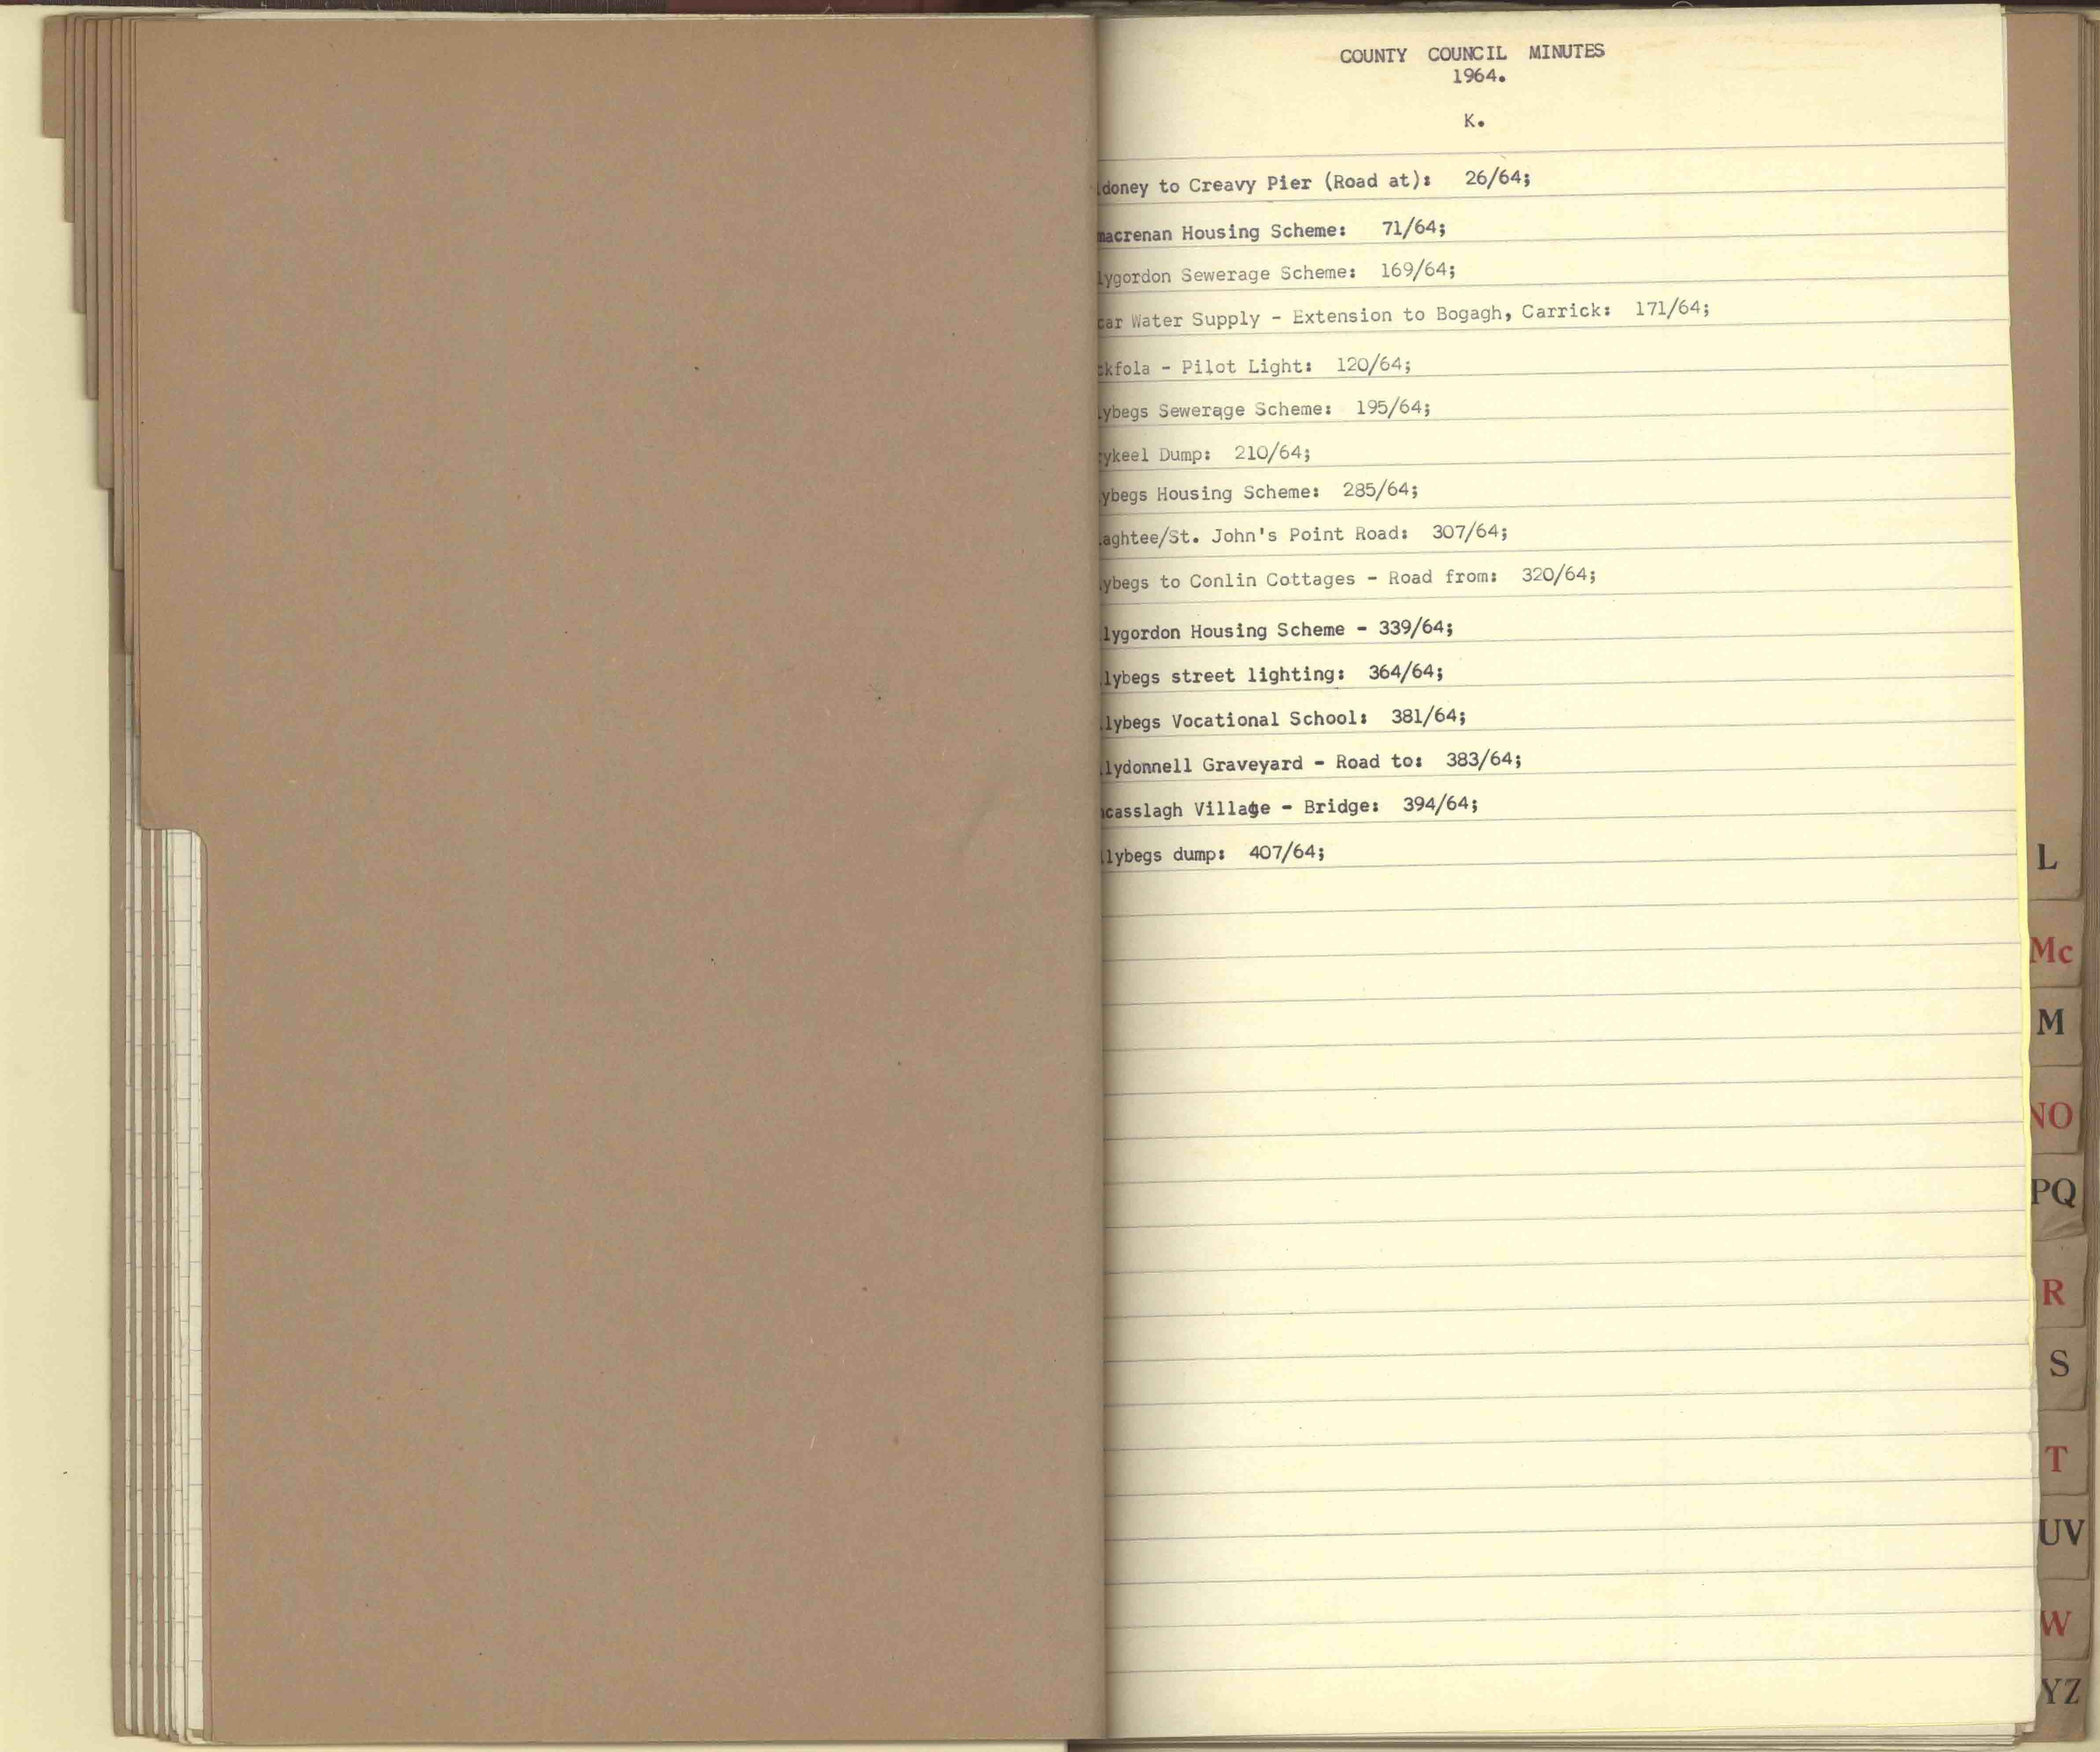 COUNTY COUNCIL MINUTES
1964.
K.
doney to Creavy Pier (Road at): 26/64;
macrenan Housing Scheme: 71/64;
lygordon Sewerage Scheme: 169/64;
car Water Supply - Extension to Bogagh, Carrick: 171/64;
ckfola - Pilot Light: 120/64;
lybegs Sewerage Scheme: 195/64;
ykeel Dump: 210/64;
ybegs Housing Scheme: 285/64;
aghtee/St. John's Point Road: 307/64;
ybegs to Conlin Cottages - Road from: 320/64;
lygordon Housing Scheme - 339/64;
lybegs street lighting: 364/64;
lybegs Vocational School: 381/64;
lydonnell Graveyard - Road to: 383/64;
casslagh Village - Bridge: 394/64;
lybegs dump: 407/64;
L
Mc
M
NO
PQ
R
S
T
UV
W
YZ